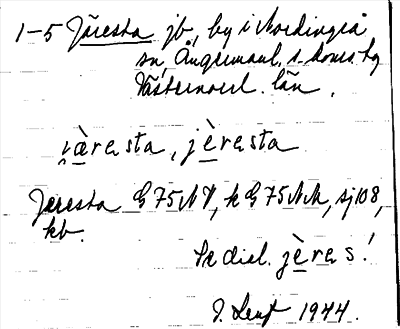 1-5 Järesta jb, by i Nordingrå
sn, Ångermanl. s. doms. hg
Västernorrl. län.
jæ̀resta, jèresta
Jeresta G 75 NV, k G 75 NM, sj 108,
kb.
Se dial. jères!
1944.